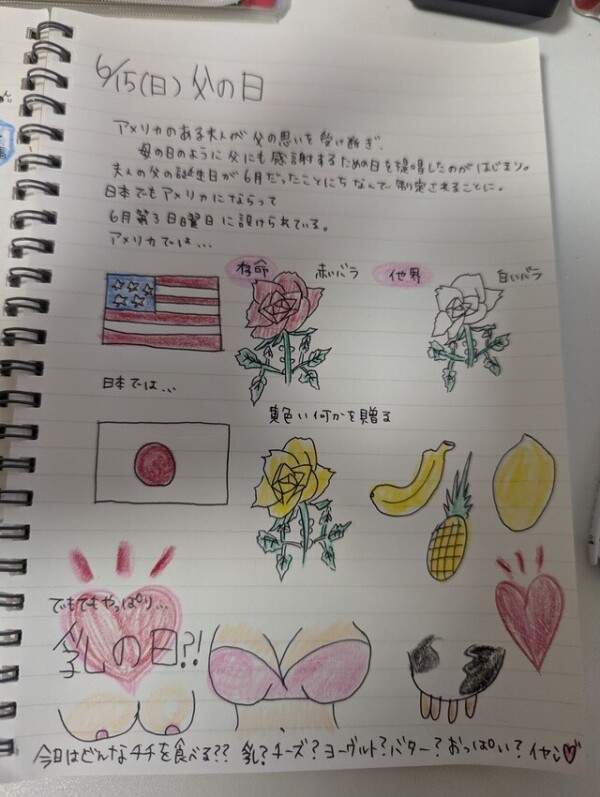 6/15(日) 父の日
アメリカのある夫人が父の思いを受け継ぎ、
母の日のように父にも感謝するための日を提唱したのがはじまり。
夫人の父の誕生日が6月だったことにちなんで制定されることに。
日本でもアメリカにならって
6月第3日曜日に設けられている。
アメリカでは…
存命 赤いバラ 他界 白いバラ
日本では…
黄色い何かを贈る
でもでもやっぱり…
乳の日?!
今日はどんなチチを食べる?? 乳?チーズ?ヨーグルト?バター?おっぱい?イヤン